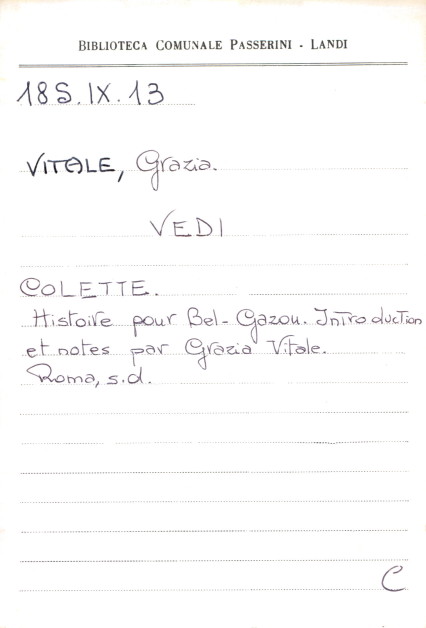 BIBLIOTECA COMUNALE PASSERINI - LANDI
18S.IX.13
VITALE, Grazia.
VEDI
COLETTE.
Histoire pour Bel-Gazou. Introduction
et notes par Grazia Vitale.
Roma, s.d.
C